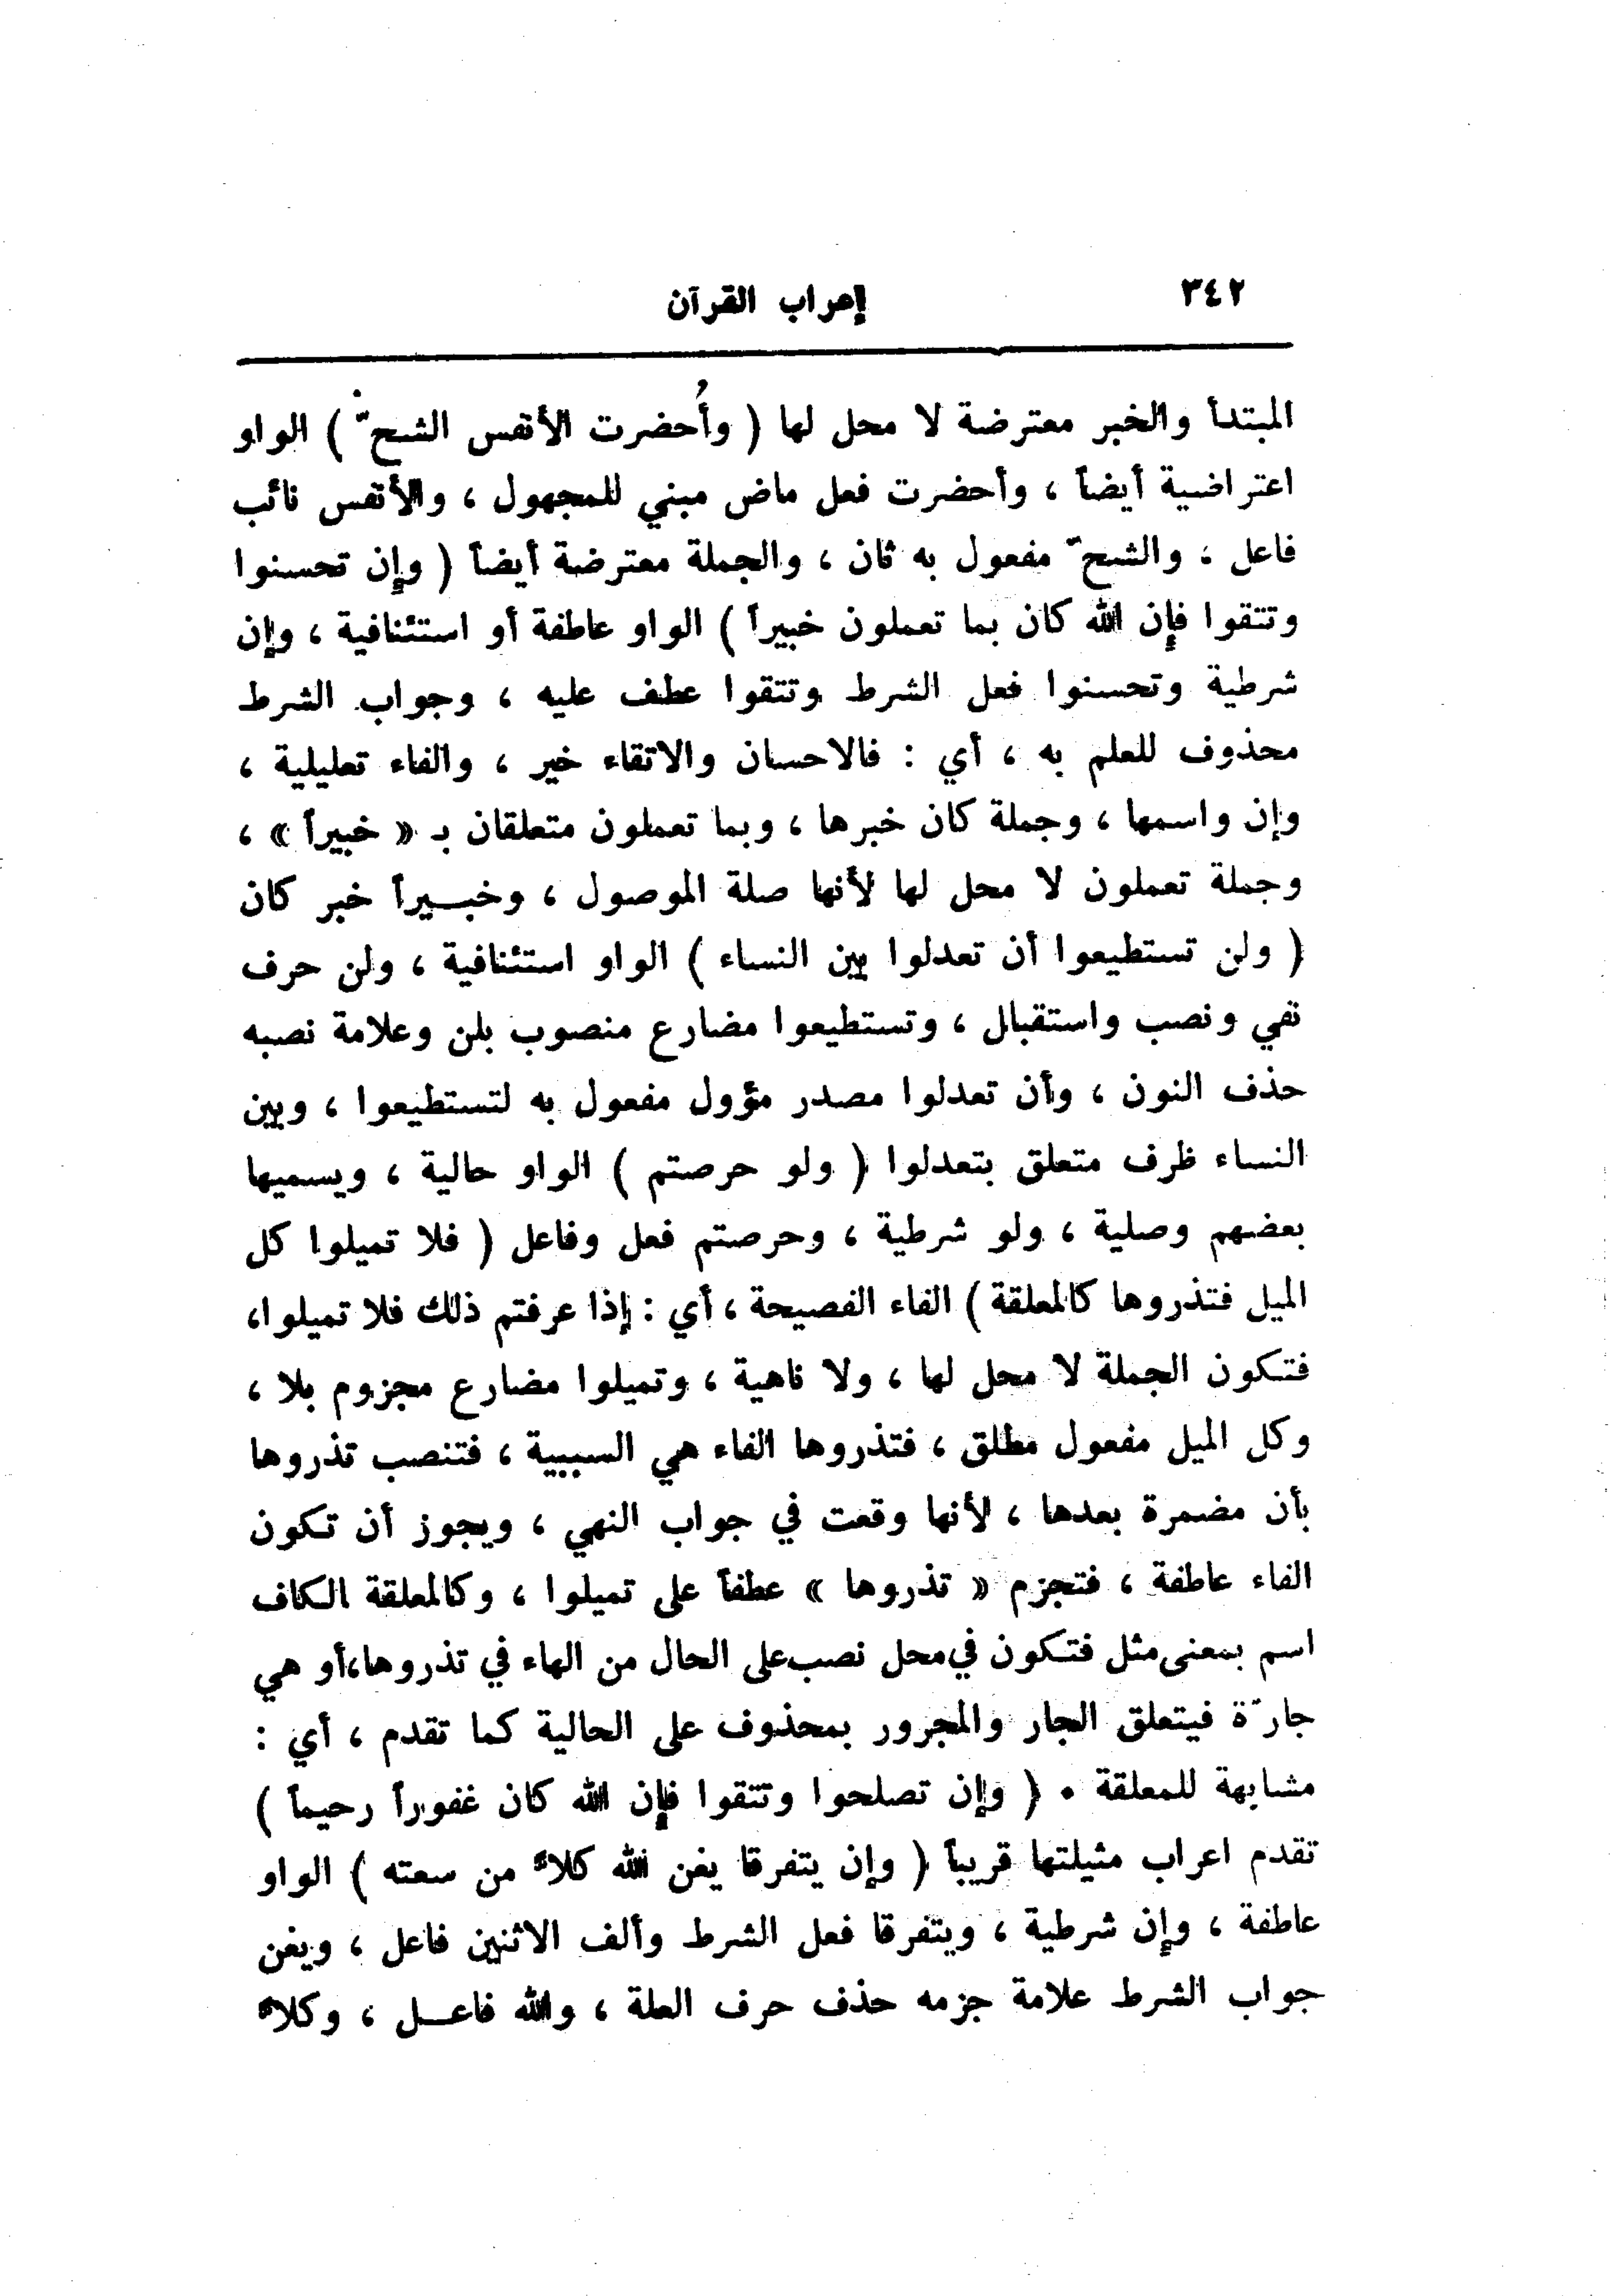 ٣٤٢ إعراب القرآن
المبتدأ والخبر معترضة لا محل لها ( وأُحضرت الأنفس الشحّ ) الواو
اعتراضية أيضاً ، وأحضرت فعل ماض مبني للمجهول ، والأنفس نائب
فاعل ، والشحّ مفعول به ثان ، والجملة معترضة أيضاً ( وإن تحسنوا
وتتقوا فإن الله كان بما تعملون خبيراً ) الواو عاطفة أو استئنافية ، وإن
شرطية وتحسنوا فعل الشرط وتتقوا عطف عليه ، وجواب الشرط
محذوف للعلم به ، أي : فالاحسان والاتقاء خير ، والفاء تعليلية ،
وإن واسمها ، وجملة كان خبرها ، وبما تعملون متعلقان بـ « خبيراً » ،
وجملة تعملون لا محل لها لأنها صلة الموصول ، وخبـــيراً خبر كان
( ولن تستطيعوا أن تعدلوا بين النساء ) الواو استئنافية ، ولن حرف
نفي ونصب واستقبال ، وتستطيعوا مضارع منصوب بلن وعلامة نصبه
حذف النون ، وأن تعدلوا مصدر مؤول مفعول به لتستطيعوا ، وبين
النساء ظرف متعلق بتعدلوا ( ولو حرصتم ) الواو حالية ، ويسميها
بعضهم وصلية ، ولو شرطية ، وحرصتم فعل وفاعل ( فلا تميلوا كل
الميل فتذروها كالمعلقة ) الفاء الفصيحة ، أي : إذا عرفتم ذلك فلا تميلوا،
فتكون الجملة لا محل لها ، ولا ناهية ، وتميلوا مضارع مجزوم بلا ،
وكل الميل مفعول مطلق ، فتذروها الفاء هي السببية ، فتنصب تذروها
بأن مضمرة بعدها ، لأنها وقعت في جواب النهي ، ويجوز أن تكون
الفاء عاطفة ، فتجزم « تذروها » عطفاً على تميلوا ، وكالمعلقة الكاف
اسم بمعنى مثل فتكون في محل نصب على الحال من الهاء في تذروها،أو هي
جارّة فيتعلق الجار والمجرور بمحذوف على الحالية كما تقدم ، أي :
مشابهة للمعلقة ٠ ( وإن تصلحوا وتتقوا فإن الله كان غفوراً رحيماً )
تقدم اعراب مثيلتها قريباً ( وإن يتفرقا يغن الله كلاً من سعته ) الواو
عاطفة ، وإن شرطية ، ويتفرقا فعل الشرط وألف الاثنين فاعل ، ويغن
جواب الشرط علامة جزمه حذف حرف العلة ، والله فاعـــل ، وكلاً